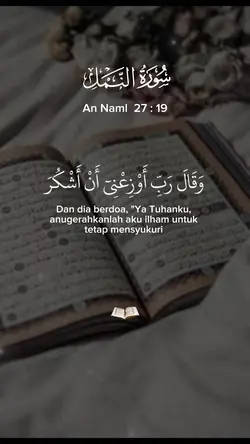 سُورَةُ النَّمْلِ
An Naml 27 : 19
وَقَالَ رَبِّ أَوْزِعْنِىٓ أَنْ أَشْكُرَ
Dan dia berdoa, "Ya Tuhanku,
anugerahkanlah aku ilham untuk
tetap mensyukuri